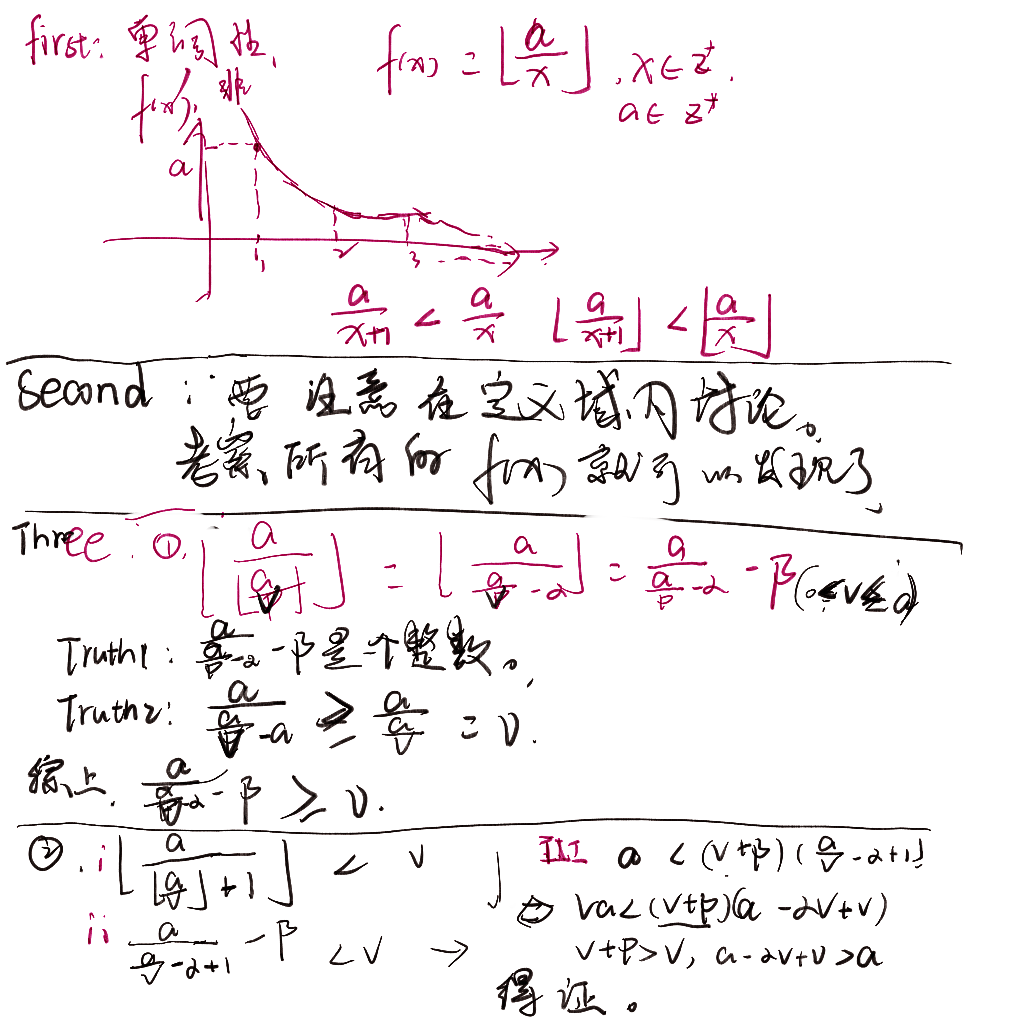 first: 单调性, f(x) = ⌊a/x⌋, x ∈ z⁺.
a ∈ z⁺
f(x)
a
1 2 3
a/(x+1) < a/x ⌊a/(x+1)⌋ < ⌊a/x⌋
Second: 要注意在定义域内讨论。
考察所有的 f(x) 就可以发现了
Three: ①. ⌊a/⌊a/v⌋⌋ = ⌊a/(a/v-α)⌋ = a/(a/v-α) - β (0≤v≤a)
Truth1: a/(a/v-α) - β是一个整数。
Truth2: a/(a/v-α) ≥ a/(a/v) = v.
综上, a/(a/v-α) - β ≥ v.
②. i ⌊a/(⌊a/v⌋+1)⌋ < v
ii a/(a/v-α+1) - β < v →
III a < (v+β)(a/v-α+1)
⇔ va < (v+β)(a-αv+v)
v+β>v, a-αv+v>a
得证。